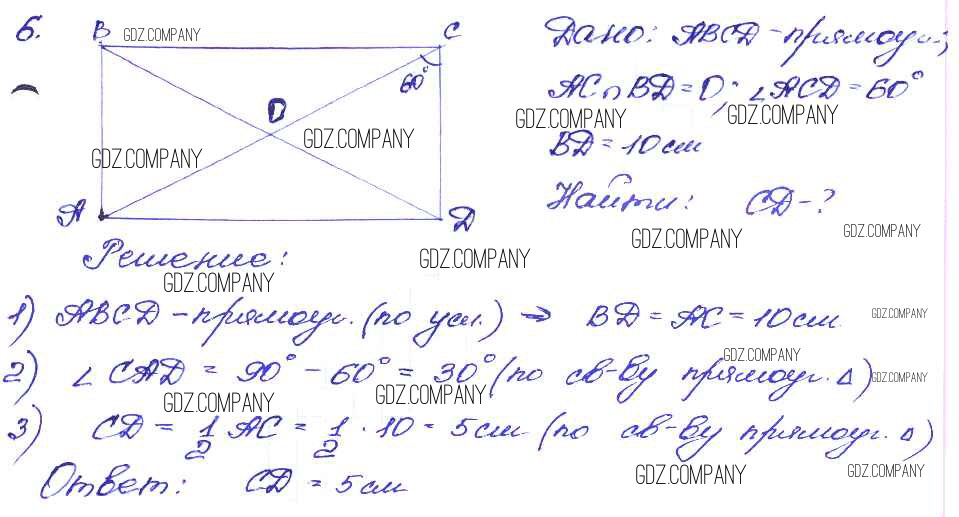 6.
B GDZ.COMPANY C
60°
O
GDZ.COMPANY
GDZ.COMPANY
A D
Дано: ABCD - прямоуг.;
AC ∩ BD = O; ∠ACD = 60°
GDZ.COMPANY GDZ.COMPANY
BD = 10 см
Найти: CD - ?
GDZ.COMPANY GDZ.COMPANY
Решение:
GDZ.COMPANY
GDZ.COMPANY
1) ABCD - прямоуг. (по усл.) → BD = AC = 10 см.
GDZ.COMPANY
GDZ.COMPANY
2) ∠CAD = 90° - 60° = 30° (по св-ву прямоуг. Δ)
GDZ.COMPANY
GDZ.COMPANY GDZ.COMPANY
3) CD = 1/2 AC = 1/2 · 10 = 5 см (по св-ву прямоуг. Δ)
GDZ.COMPANY GDZ.COMPANY
Ответ: CD = 5 см